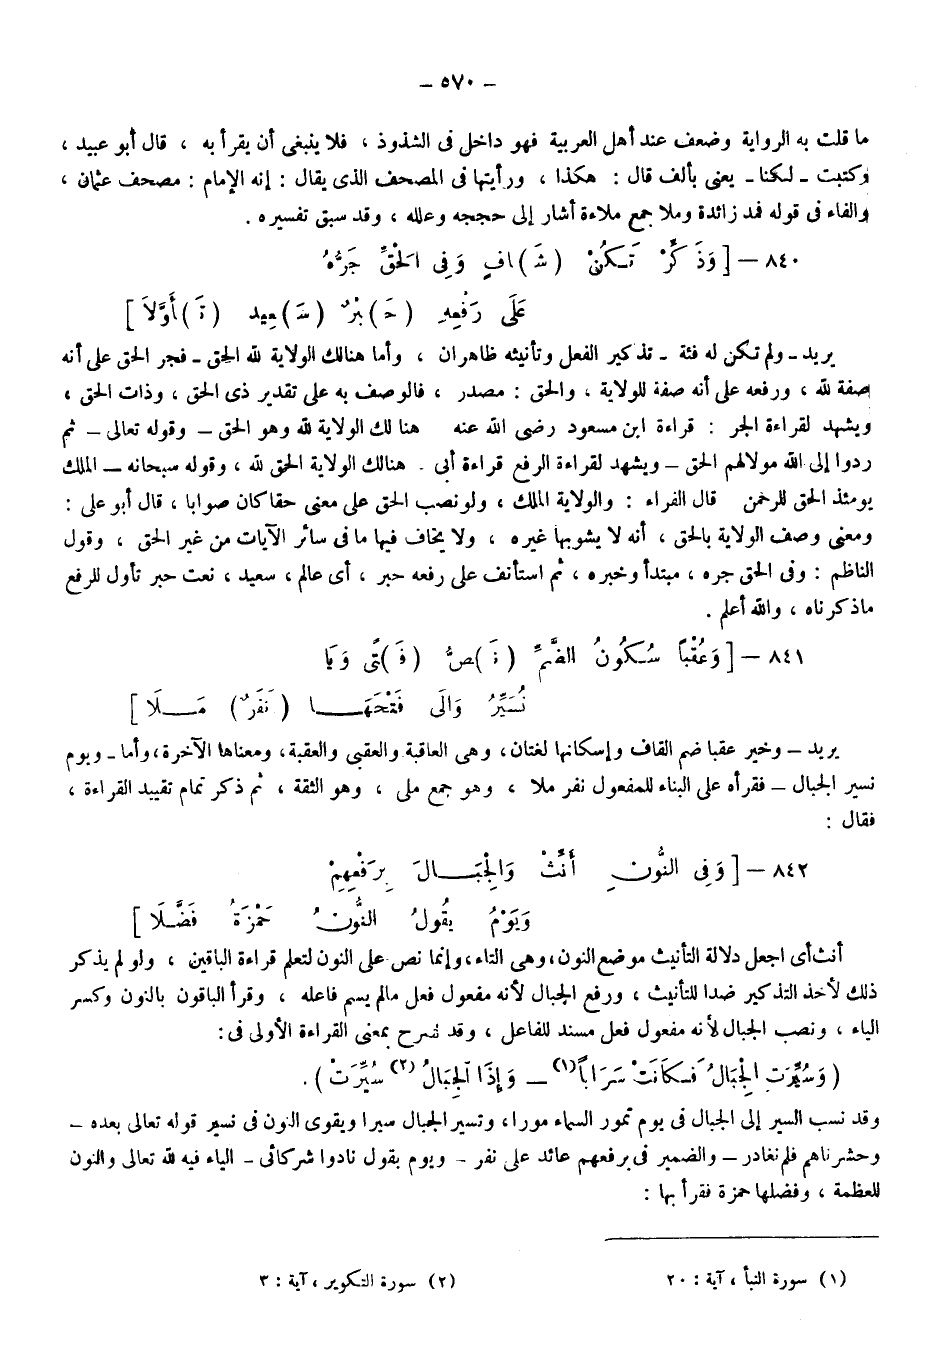 — ٥٧٠ —
ما قلت به الرواية وضعف عند أهل العربية فهو داخل فى الشذوذ ، فلا ينبغى أن يقرأ به ، قال أبو عبيد ،
وكتبت ـ لكنا ـ يعنى بألف قال : هكذا ، ورأيتها فى المصحف الذى يقال : إنه الإمام : مصحف عثمان ،
والفاء فى قوله فمد زائدة وملا جمع ملاءة أشار إلى حججه وعلله ، وقد سبق تفسيره .
٨٤٠ — [ وَذَكِّرْ تَكُنْ (شَ)افٍ وَفِى الحَقِّ جَرُّهُ
عَلَى رَفْعِهِ (حَ)بْرٌ (سَ)عِيد (تَ)أَوَّلاَ ]
يريد ـ ولم تكن له فئة ـ تذكير الفعل وتأنيثه ظاهران ، وأما هنالك الولاية لله الحق ـ فجر الحق على أنه
صفة لله ، ورفعه على أنه صفة للولاية ، والحق : مصدر ، فالوصف به على تقدير ذى الحق ، وذات الحق ،
ويشهد لقراءة الجر : قراءة ابن مسعود رضى الله عنه هنالك الولاية لله وهو الحق — وقوله تعالى — ثم
ردوا إلى الله مولاهم الحق — ويشهد لقراءة الرفع قراءة أبى . هنالك الولاية الحق لله ، وقوله سبحانه — الملك
يومئذ الحق للرحمن قال الفراء : والولاية الملك ، ولو نصب الحق على معنى حقا كان صوابا ، قال أبو على :
ومعنى وصف الولاية بالحق ، أنه لا يشوبها غيره ، ولا يخاف فيها ما فى سائر الآيات من غير الحق ، وقول
الناظم : وفى الحق جره ، مبتدأ وخبره ، ثم استأنف على رفعه حبر ، أى عالم ، سعيد ، نعت حبر تأول للرفع
ماذكرناه ، والله أعلم .
٨٤١ — [ وَعُقْباً سُكُونُ الضَّمِّ (نَ)صُّ (فَ)تًى وَيَا
نُسَيِّرُ وَالَى فَتْحَهَـا (نَفَرٌ) مَـلَا ]
يريد — وخير عقبا ضم القاف وإسكانها لغتان، وهى العاقبة والعقبى والعقبة، ومعناها الآخرة، وأما ـ ويوم
نسير الجبال — فقرأه على البناء للمفعول نفر ملا ، وهو جمع ملى ، وهو الثقة ، ثم ذكر تمام تقييد القراءة ،
فقال :
٨٤٢ — [ وَفِى النُّونِ أَنِّثْ وَالْجِبَـالَ بِرَفْعِهِمْ
وَيَوْمُ يَقُولُ النُّونُ حَمْزَةُ فَضَّلَا ]
أنث أى اجعل دلالة التأنيث موضع النون، وهى التاء، وإنما نص على النون لتعلم قراءة الباقين ، ولو لم يذكر
ذلك لأخذ التذكير ضدا للتأنيث ، ورفع الجبال لأنه مفعول فعل مالم يسم فاعله ، وقرأ الباقون بالنون وكسر
الياء ، ونصب الجبال لأنه مفعول فعل مسند للفاعل ، وقد صرح بمعنى القراءة الأولى فى :
( وَسُيِّرَتِ الْجِبَالُ فَـكَانَتْ سَرَاباً (١) — وَإِذَا الْجِبَالُ (٢) سُيِّرَتْ ) .
وقد نسب السير إلى الجبال فى يوم تمور السماء مورا، وتسير الجبال سيرا ويقوى النون فى نسير قوله تعالى بعده —
وحشرناهم فلم نغادر — والضمير فى برفعهم عائد على نفر - ويوم يقول نادوا شركائى - الياء فيه لله تعالى والنون
للعظمة ، وفضلها حمزة فقرأ بها :
(١) سورة النبأ ، آية : ٢٠ (٢) سورة التكوير ، آية : ٣